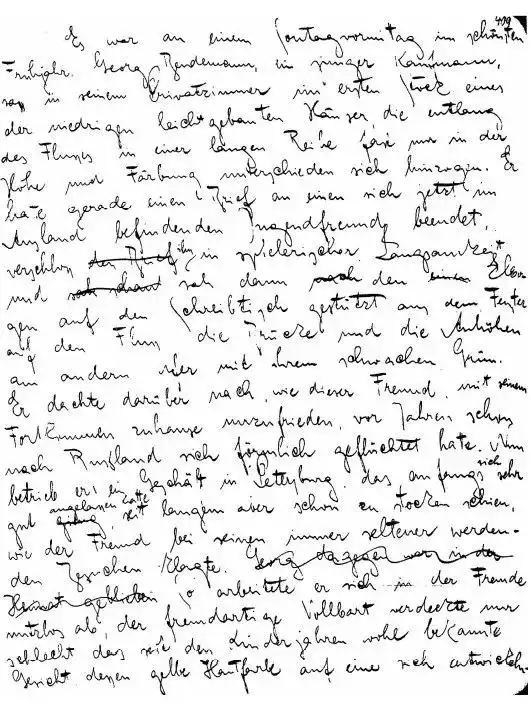 419
Es war an einem Sontagvormittag im schönsten
Frühjahr. Georg Bendemann, ein junger Kaufmann,
sass in seinem Privatzimmer im ersten Stock eines
der niedrigen leichtgebauten Häuser, die entlang
des Flusses in einer langen Reihe fast nur in der
Höhe und Färbung unterschieden sich hinzogen. Er
hatte gerade einen Brief an einen sich jetzt im
Ausland befindenden Jugendfreund beendet,
verschloss der Brief ihn in spielerischer Langsamkeit
und sah dann nach den einen Ellbo
gen auf den Schreibtisch gestützt aus dem Fenster
auf den Fluss die Brücke und die Anhöhen
am andern Ufer mit ihrem schwachen Grün.
Er dachte darüber nach, wie dieser Freund, mit seinem
Fortkommen zuhause unzufrieden, vor Jahren schon
nach Russland sich förmlich geflüchtet hatte. Nun
betrieb er ein Geschäft in Petersburg, das anfangs sich sehr
gut angelassen hatte, seit langem aber schon zu stocken schien,
wie der Freund bei seinen immer seltener werden-
den Besuchen klagte. Georg dagegen war in der
Heimat geblieben So arbeitete er sich in der Fremde
nutzlos ab, der fremdartige Vollbart verdeckte nur
schlecht das seit den Kinderjahren wohl bekannte
Gesicht dessen gelbe Hautfarbe auf eine sich entwickeln-